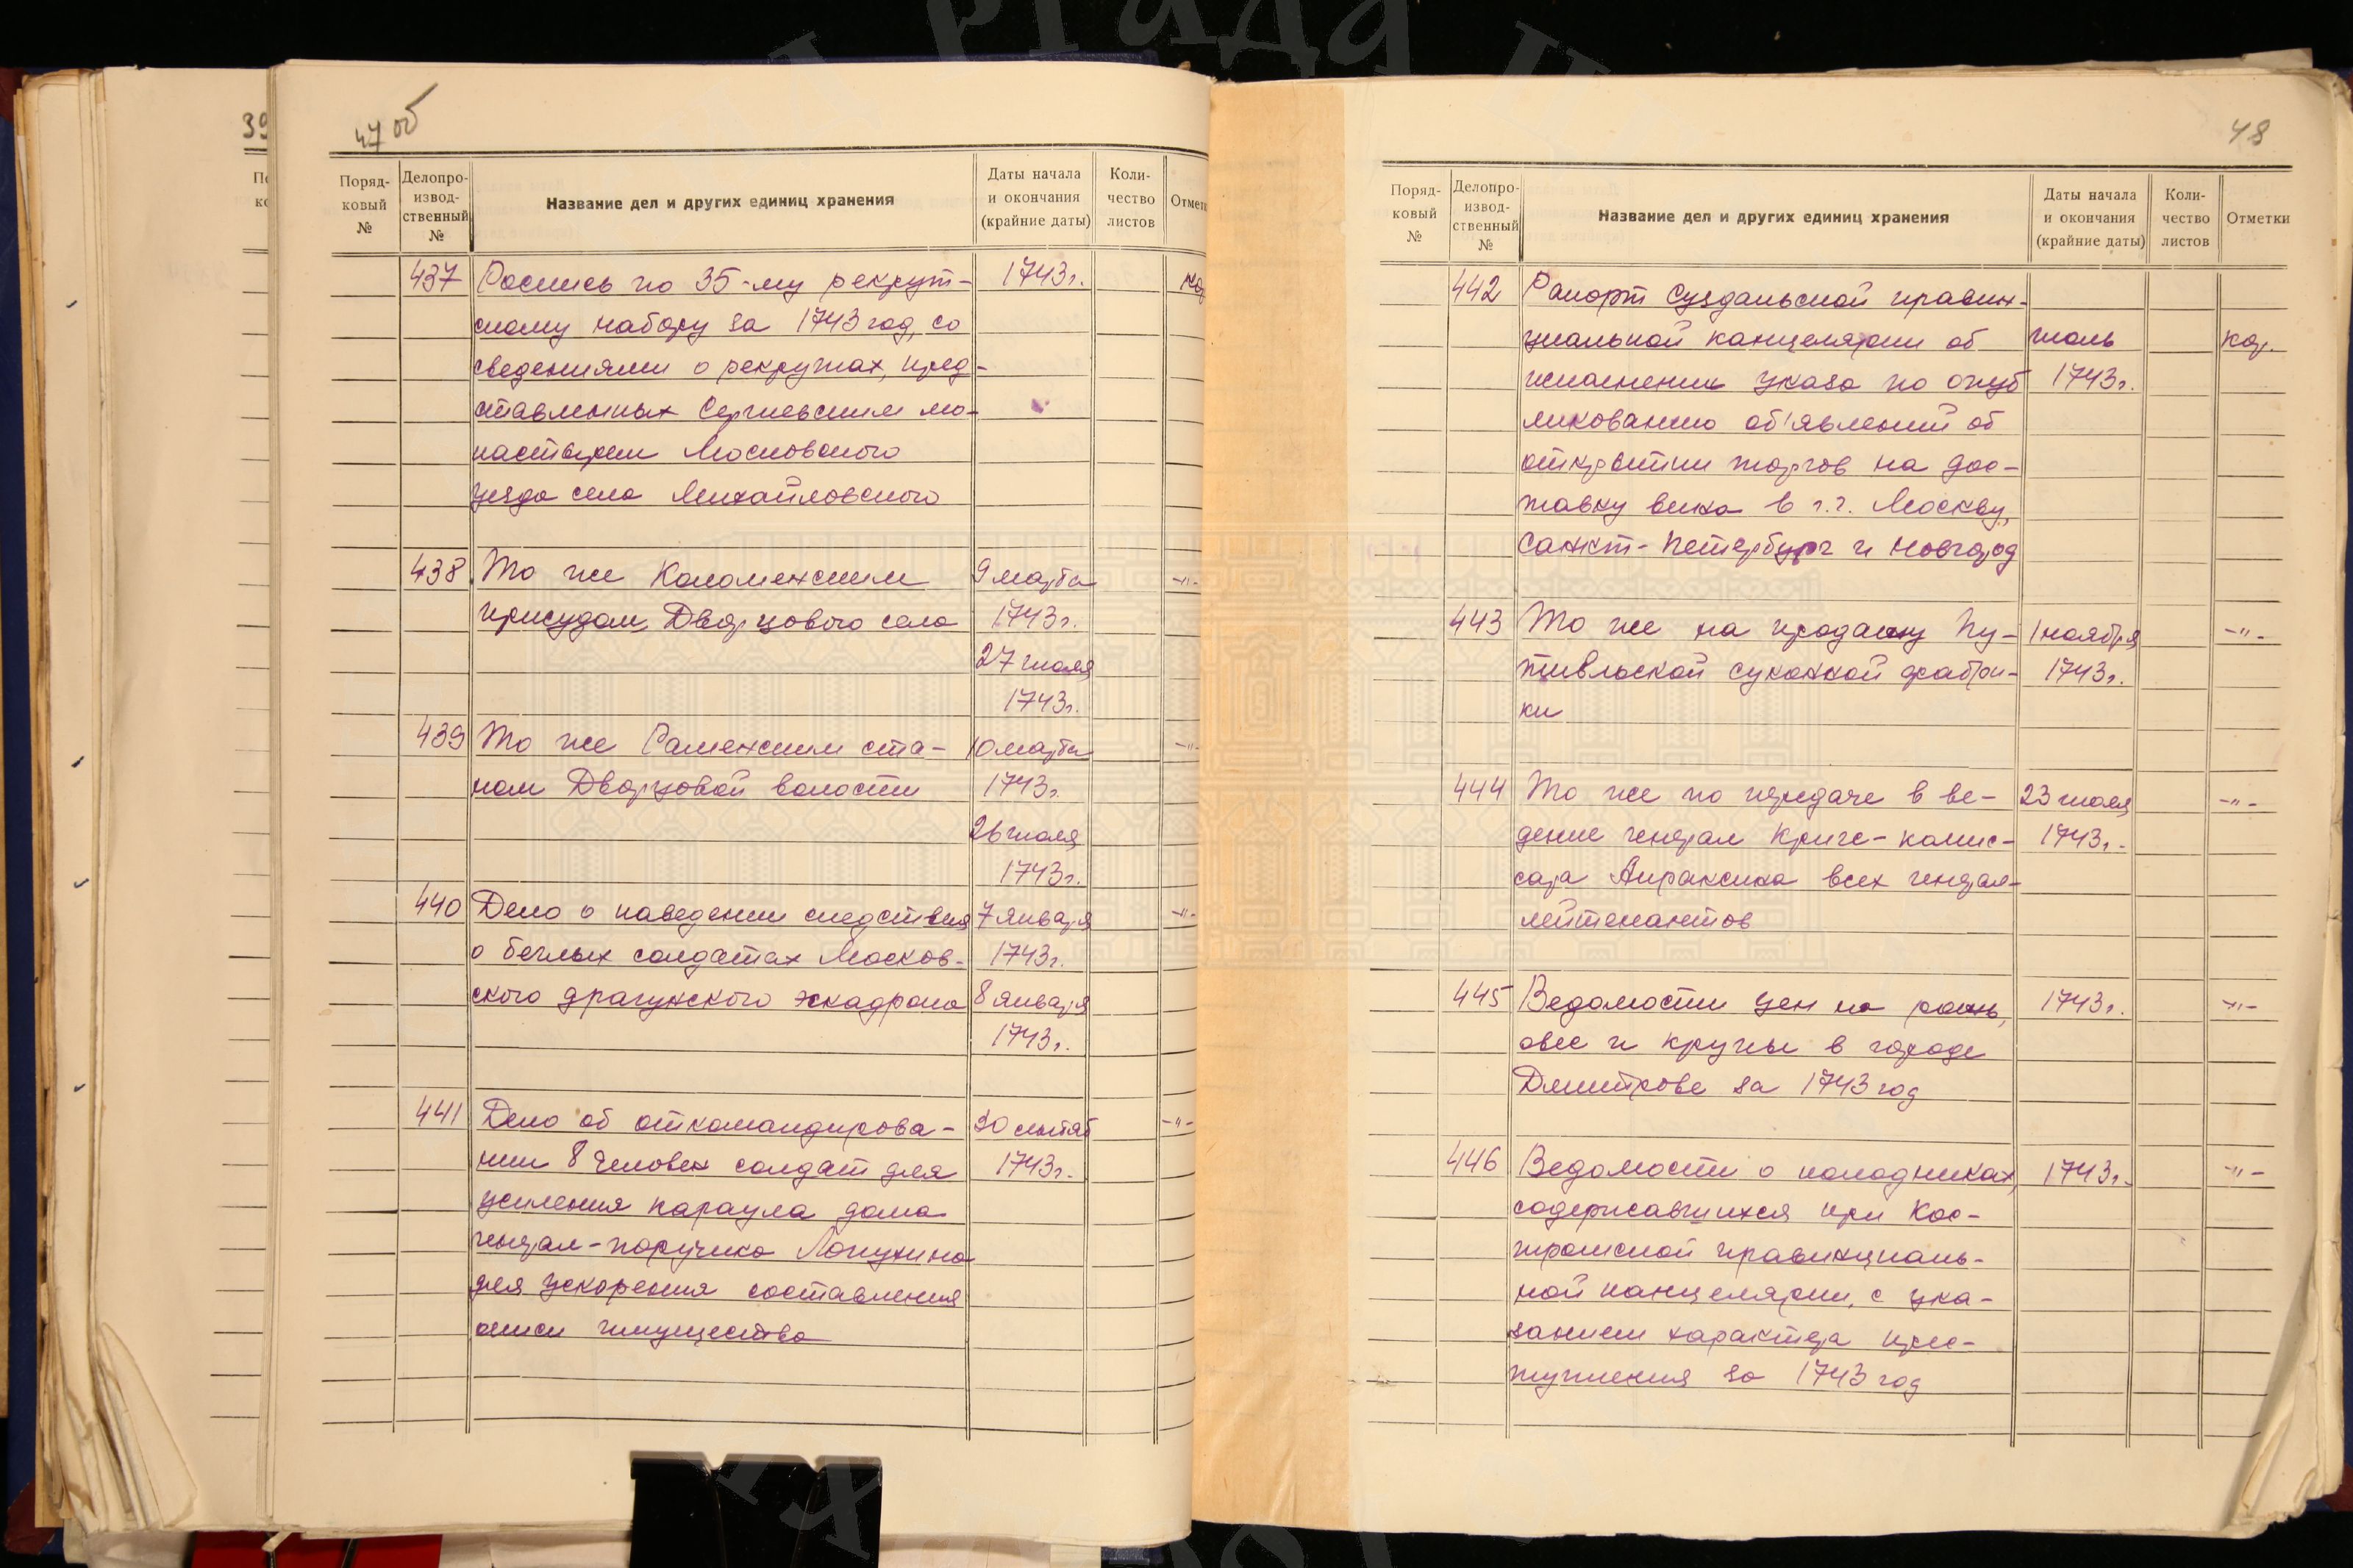 47 об
Поряд-
ковый
№
Делопро-
извод-
ственный
№
Название дел и других единиц хранения
Даты начала
и окончания
(крайние даты)
Коли-
чество
листов
Отмет
437 Роспись по 35-му рекрут- 1743 г. кор
скому набору за 1743 год, со
сведениями о рекрутах, пред-
ставленных Сергиевским мо-
настырем Московского
уезда села Михайловского
438 То же Коломенским 9 марта -"-
присудом Дворцового села 1743 г.
27 июля
1743 г.
439 То же Раменским ста- 10 марта -"-
ном Дворцовой волости 1743 г.
26 июля
1743 г.
440 Дело о наведении следствия 7 января -"-
о беглых солдатах Москов- 1743 г.
ского драгунского эскадрона 8 января
1743 г.
441 Дело об откомандирова- 30 сентяб -"-
нии 8 человек солдат для 1743 г.
усиления караула дома
генерал-поручика Лопухина
для ускорения составления
описи имущества
48
Поряд-
ковый
№
Делопро-
извод-
ственный
№
Название дел и других единиц хранения
Даты начала
и окончания
(крайние даты)
Коли-
чество
листов
Отметки
442 Рапорт Суздальской правин-
циальной канцелярии об июль кор.
исполнении указа по опуб 1743 г.
ликованию об'явлений об
открытии торгов на дос-
тавку вина в г.г. Москву,
Санкт-Петербург и Новгород
443 То же на продажу Пу- 1 ноября -"-
тивльской суконной фабри- 1743 г.
ки
444 То же по передаче в ве- 23 июля -"-
дение генерал Кригс-комис- 1743 г.
сара Апраксина всех генерал-
лейтенантов
445 Ведомости цен на рожь, 1743 г. -"-
овес и крупы в городе
Дмитрове за 1743 год
446 Ведомости о колодниках, 1743 г. -"-
содержавшихся при Кос-
тромской правинциаль-
ной канцелярии, с ука-
занием характера прес-
тупления за 1743 год